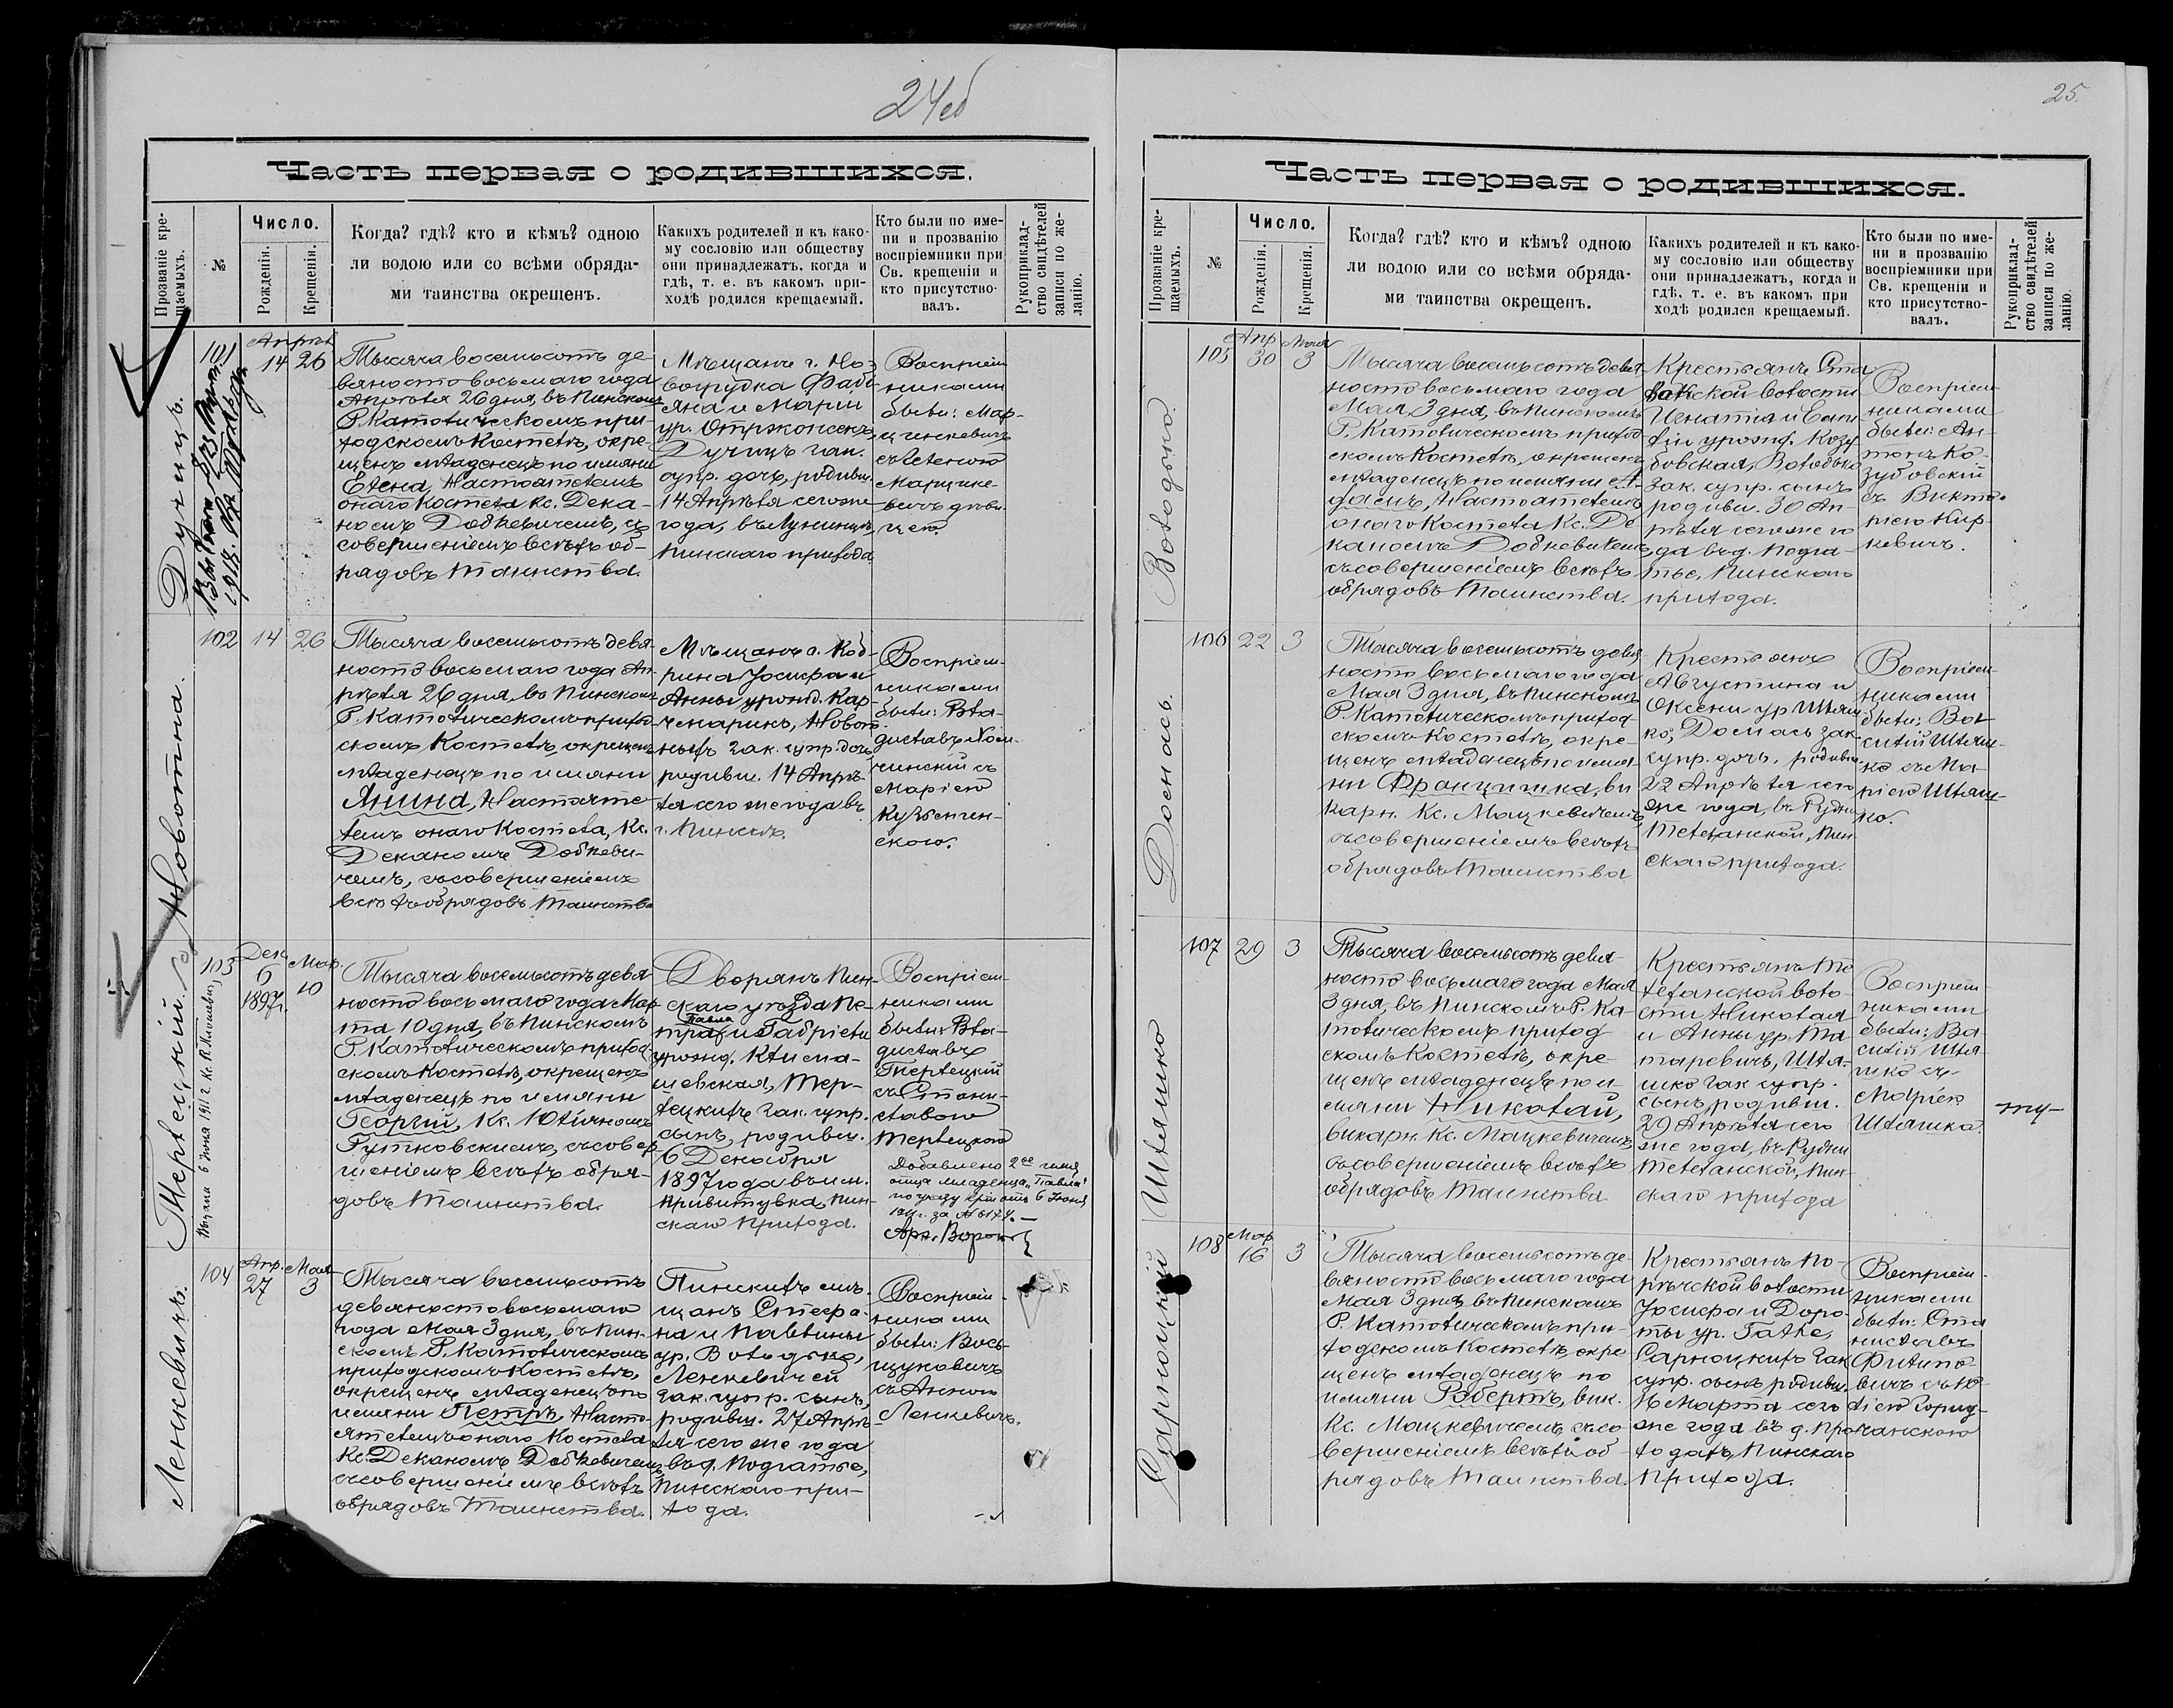 24об
Часть первая о родившихся.
Прозваніе кре-
щаемыхъ.
№
Число.
Рожденія.
Крещенія.
Когда? гдѣ? кто и кѣмъ? одною
ли водою или со всѣми обряда-
ми таинства окрещенъ.
Какихъ родителей и къ како-
му сословію или обществу
они принадлежатъ, когда и
гдѣ, т. е. въ какомъ при-
ходѣ родился крещаемый.
Кто были по име-
ни и прозванію
воспріемники при
Св. крещеніи и
кто присутство-
валъ.
Рукоприклад-
ство свидѣтелей
записи по же-
ланію.
Дучицъ.
101
Апрѣль
14 26
Тысяча восемьсотъ де-
вяносто восьмаго года
Апрѣля 26 дня, въ Пинскомъ
Р. Католическомъ при-
ходскомъ Костелѣ, окре-
щенъ младенецъ по имяни
Елена, Настоятелемъ
онаго Костела Кс. Дека-
номъ Добкевичемъ, съ
совершеніемъ всѣхъ об-
рядовъ Таинства.
Мѣщанъ г. Но-
вогрудка Фаби-
яна и Маріи
ур.
Дучицъ зак.
супр. дочь, родивш.
14 Апрѣля сего же
года, въ Лунинцѣ,
Пинскаго прихода.
Воспріем-
никами
были: Мар-
цинкевичъ
съ Еленою
Марцинке-
вичъ
Новотна.
102 14 26
Тысяча восемьсотъ девя-
носто восьмаго года Ап-
рѣля 26 дня, въ Пинскомъ
Р. Католическомъ приход-
скомъ Костелѣ, окрещенъ
младенецъ по имяни
Янина, Настояте-
лемъ онаго Костела, Кс.
Деканомъ Добкеви-
чемъ, съ совершеніемъ
всѣхъ обрядовъ Таинства
Мѣщанъ г. Коб-
рина Іосифа и
Анны урожд. Кар-
чмаринъ, Новот-
ныхъ зак. супр. дочь
родивш. 14 Апрѣ-
ля сего же года въ
г. Пинскѣ.
Воспріем-
никами
были: Вла-
диславъ
съ
Маріею
Терлецкій.
103
Дек.
6
1897 г.
Мар.
10
Выдана 6 Іюня 1911 г.
Тысяча восемьсотъ девя-
носто восьмаго года Мар-
та 10 дня, въ Пинскомъ
Р. Католическомъ приход-
скомъ Костелѣ, окрещенъ
младенецъ по имяни
Георгій, Кс. Юліаномъ
Рутковскимъ, съ совер-
шеніемъ всѣхъ обря-
довъ Таинства.
Дворянъ Пин-
скаго уѣзда Пе-
Павла
тра и Габріели
урожд. Клима-
шевская, Тер-
лецкихъ зак. супр.
сынъ, родивш.
6 Декабря
1897 года въ им.
Привитувка, Пин-
скаго Прихода.
Воспріем-
никами
были: Вла-
диславъ
Терлецкій
съ Стани-
славою
Терлецкою
Добавлено 2ое имя
отца младенца „Павла“
по указу отъ 6 Іюня
1911 г. за № 6174.
Ленкевичъ.
104
Апр.
27
Мая
3
Тысяча восемьсотъ
девяносто восьмаго
года Мая 3 дня, въ Пин-
скомъ Р. Католическомъ
приходскомъ Костелѣ,
окрещенъ младенецъ по
имяни Петръ, Насто-
ятелемъ онаго Костела
Кс. Деканомъ Добкевичемъ,
съ совершеніемъ всѣхъ
обрядовъ Таинства.
Пинскихъ мѣ-
щанъ Стефа-
на и Павлины
ур. Володько,
Ленкевичей
зак. супр. сынъ,
родивш. 27 Апрѣ-
ля сего же года
въ д. Подгатье,
Пинскаго при-
хода.
Воспріем-
никами
были:
съ Анною
Ленкевичъ.
25.
Часть первая о родившихся.
Прозваніе кре-
щаемыхъ.
№
Число.
Рожденія.
Крещенія.
Когда? гдѣ? кто и кѣмъ? одною
ли водою или со всѣми обряда-
ми таинства окрещенъ.
Какихъ родителей и къ како-
му сословію или обществу
они принадлежатъ, когда и
гдѣ, т. е. въ какомъ при
ходѣ родился крещаемый.
Кто были по име-
ни и прозванію
воспріемники при
Св. крещеніи и
кто присутство-
валъ.
Рукоприклад-
ство свидѣтелей
записи по же-
ланію.
Володько.
105
Апр
30
Мая
3
Тысяча восемьсотъ девя-
носто восьмаго года
Мая 3 дня, въ Пинскомъ
Р. Католическомъ приход-
скомъ Костелѣ, окрещенъ
младенецъ по имяни А-
дамъ, Настоятелемъ
онаго Костела Кс. Де-
каномъ Добкевичемъ
съ совершеніемъ всѣхъ
обрядовъ Таинства.
Крестьянъ
волости
Игнатія и
урожд. Козу-
бовская, Володько
зак. супр. сынъ
родивш. 30 Ап-
рѣля сего же го-
да въ д. Подга-
тье, Пинскаго
прихода.
Воспріем-
никами
были: Ан-
тонъ Ко-
зубовскій
съ Викто-
ріею Кир-
кевичъ.
Домась.
106 22 3
Тысяча восемьсотъ девя-
носто восьмаго года
Мая 3 дня, въ Пинскомъ
Р. Католическомъ приход-
скомъ Костелѣ, окре-
щенъ младенецъ по имя-
ни Францишка, ви-
карн. Кс. Мацкевичемъ,
съ совершеніемъ всѣхъ
обрядовъ Таинства
Крестьянъ
Августина и
Оксени ур Штям-
ко, Домась зак.
супр. дочь, родивш.
22 Апрѣля сего
же года, въ Рудни
Телеханской, Пин-
скаго прихода.
Воспріем-
никами
были: Ва-
силій Штям-
ко съ Ма-
ріею Штям-
ко.
Штямко
107 29 3
Тысяча восемьсотъ девя-
носто восьмаго года Мая
3 дня, въ Пинскомъ Р. Ка-
толическомъ приход-
скомъ Костелѣ, окре-
щенъ младенецъ по и-
мяни Николай,
викарн. Кс. Мацкевичемъ,
съ совершеніемъ всѣхъ
обрядовъ Таинства
Крестьянъ Те-
леханской воло-
сти Николая
и Анны ур. Та-
таревичъ, Штя-
мко зак супр.
сынъ, родивш.
29 Апрѣля сего
же года, въ Рудни
Телеханской, Пин-
скаго прихода
Воспріем-
никами
были: Ва-
силій Штя-
мко съ
Маріею
Штямко.
Сарноцкій
108
Мар
16 3
Тысяча восемьсотъ де-
вяносто восьмаго года
Мая 3 дня, въ Пинскомъ
Р. Католическомъ при-
ходскомъ Костелѣ, окре-
щенъ младенецъ по
имяни Робертъ, вик.
Кс. Мацкевичемъ, съ со-
вершеніемъ всѣхъ об-
рядовъ Таинства.
Крестьянъ По-
рѣчской волости
Іосифа и Доро-
ты ур. Гатке,
Сарноцкихъ зак
супр. сынъ родивш.
16 Марта сего
же года въ д. Про-
ходахъ, Пинскаго
Прихода.
Воспріем-
никами
были: Ста-
ниславъ
Филипо-
вичъ съ Ю-